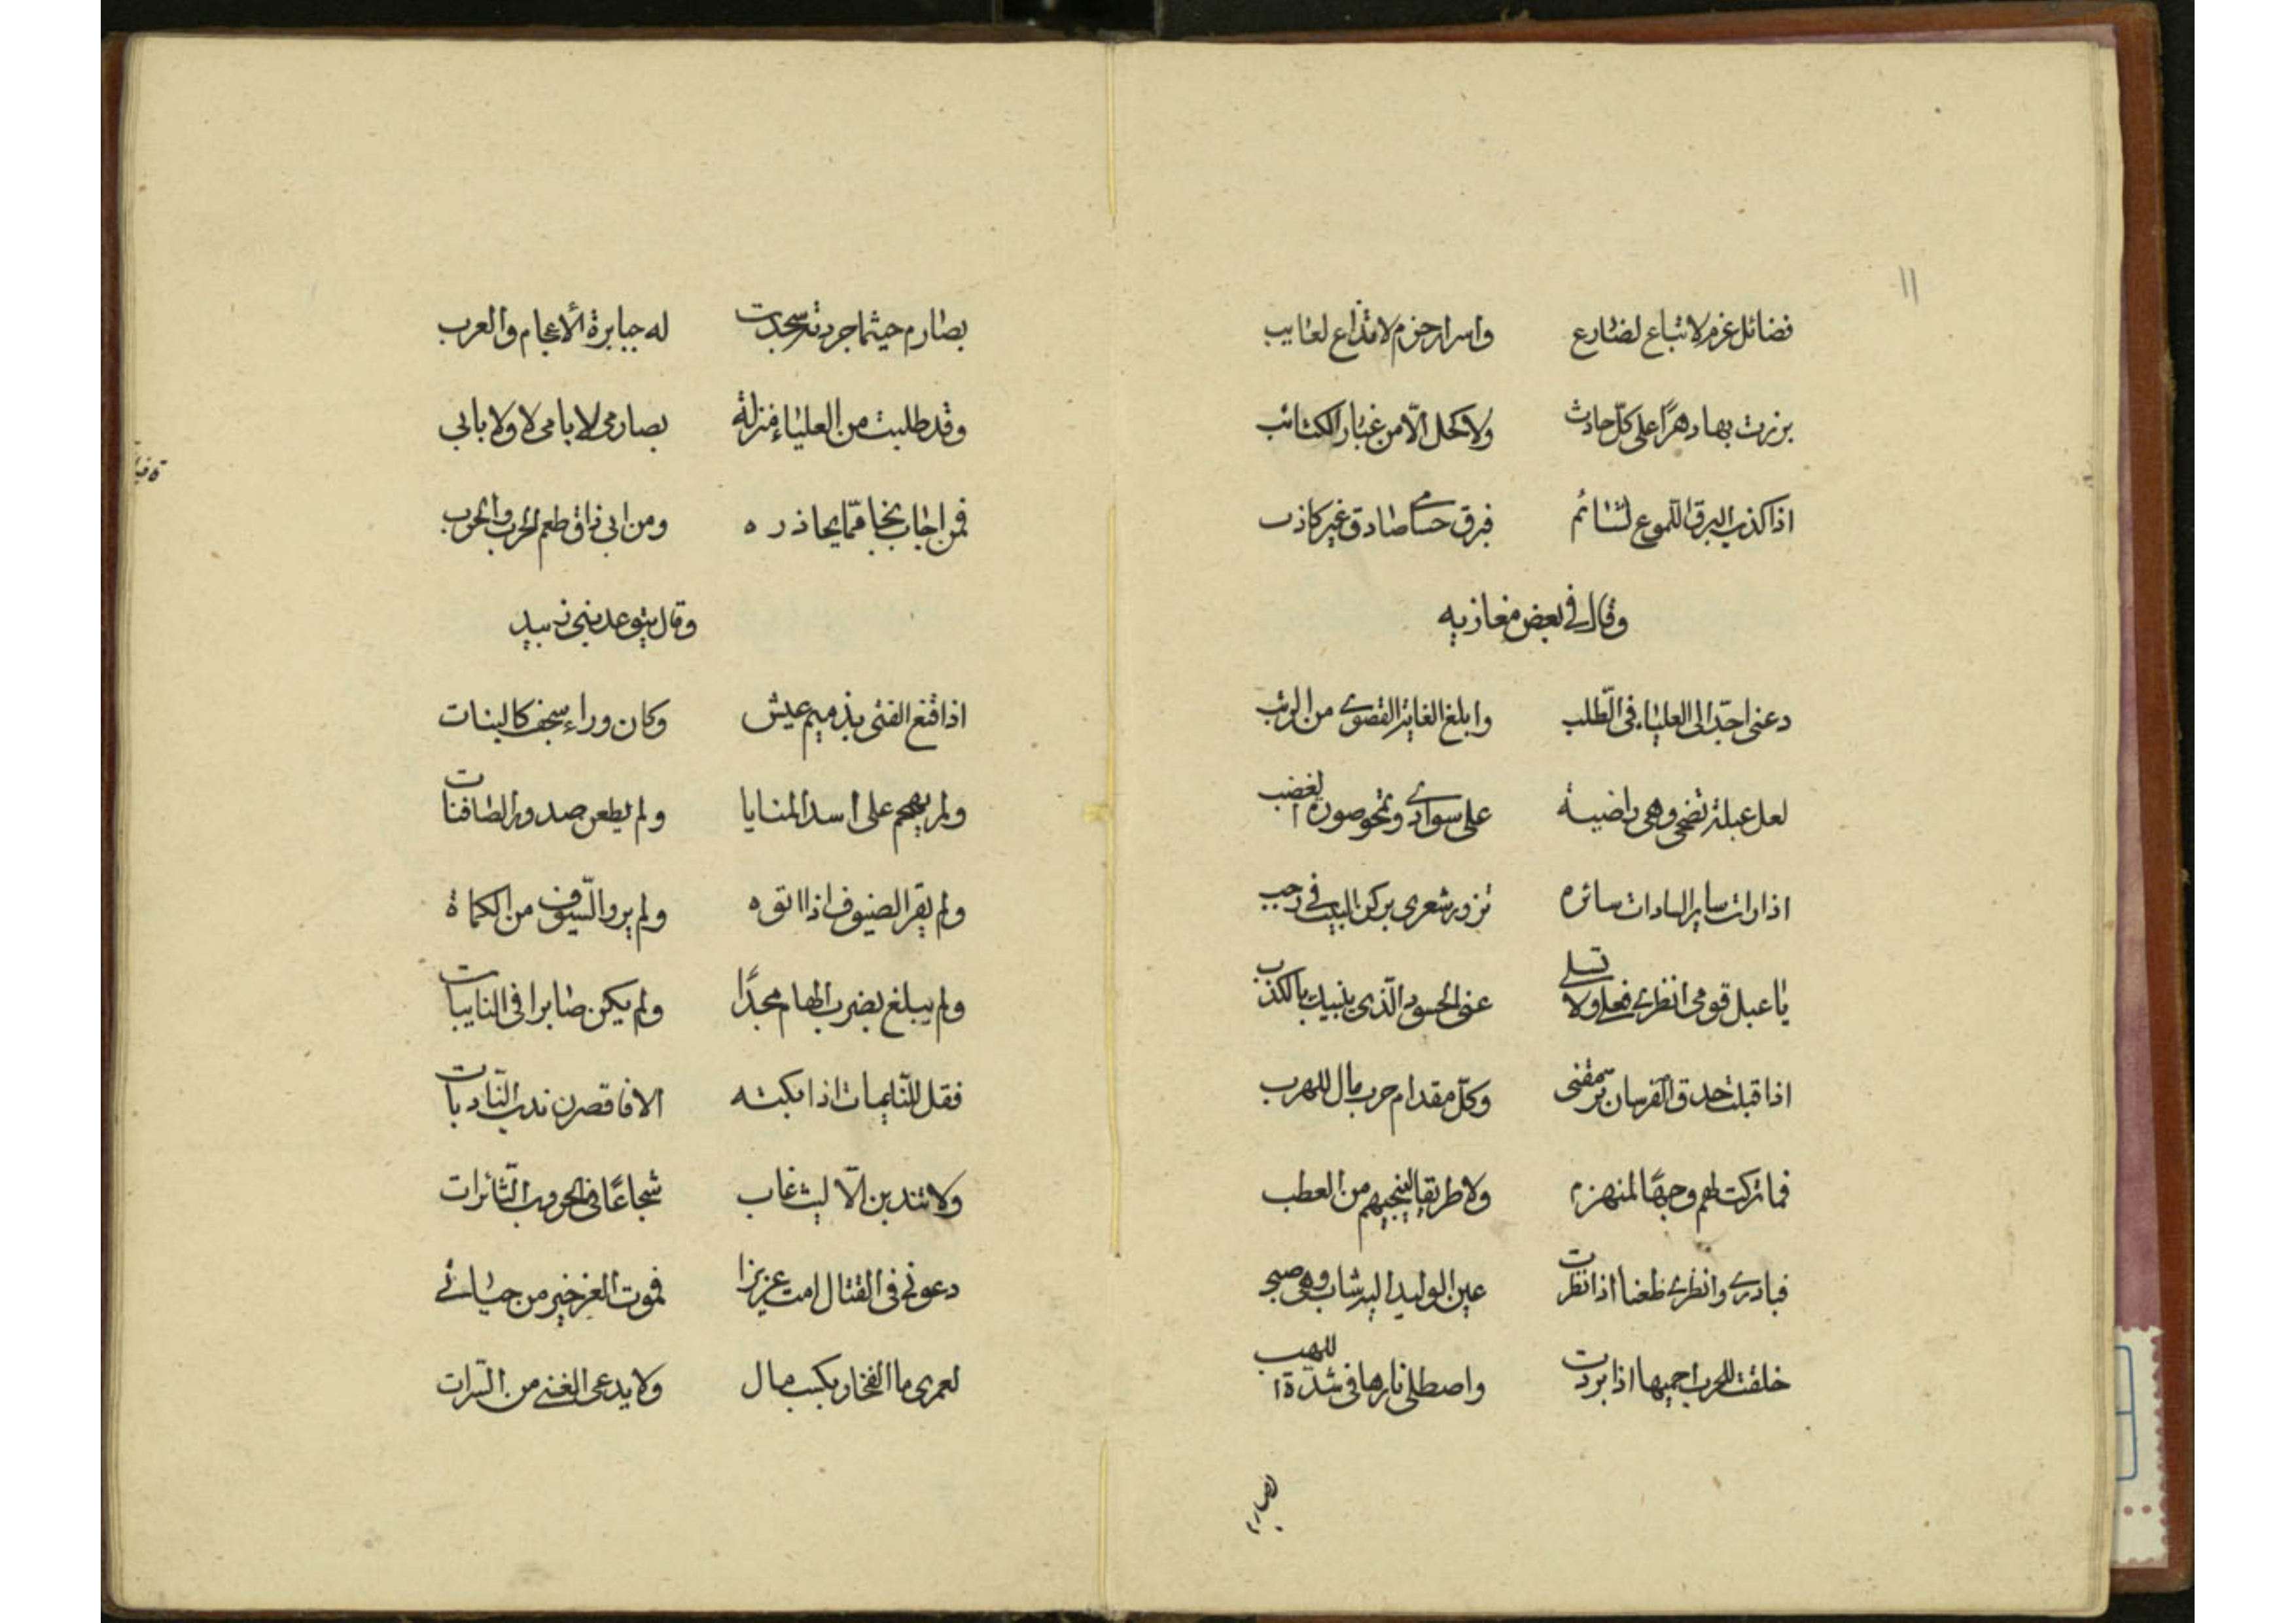 ١١
فضائل عزم لا تباع لضارع واسرار حزم لا تذاع لعايب
برزت بها دهرًا على كلّ حادث ولا كحل الّا من غبار الكتائب
اذا كذب البرق اللموع لشائم فبرق حسامي صادق غير كاذب
وقال في بعض مغازيه
دعنى اجدّ الى العلياء فى الطّلب وابلغ الغاية القصوى من الرتب
لعل عبلة تضحى وهى راضية على سوادى وتمحو صورة الغضب
اذا رات ساير السادات سائره تزور شعرى بركن البيت في رجب
يا عبل قومى انظرى فعلى ولا تسلى عنى الحسود الّذى ينبيك بالكذب
اذا قبلت حدق الفرسان ترمقنى وكلّ مقدام حرب مال للهرب
فما تركت لهم وجهًا لمنهزم ولا طريقا ينجيهم من العطب
فبادرى وانظرى طعنا اذا نظرت عين الوليد اليه شاب وهو صبى
خلقت للحرب احميها اذا بردت واصطلى نارها فى شدّة اللهب
بصارم
بصارم حيثما جردته سجدت له جبابرة الأعجام والعرب
وقد طلبت من العلياء منزلة بصارمى لا بامى لا ولا بابى
فمن اجاب نجا ممّا يحاذره ومن ابى ذاق طعم الحرب والحرب
وقال يتوعد بنى زبيد
اذا قنع الفتى بذميم عيش وكان وراء سجف كالبنات
ولم يهجم على اسد المنايا ولم يطعن صدور الصافنات
ولم يقر الضيوف اذا اتوه ولم يرو السّيوف من الكماة
ولم يبلغ بضرب الهام مجدًا ولم يكن صابرا فى النايبات
فقل للنّايحات اذا بكته الا فاقصرن ندب النّادبات
ولا تندبن الّا ليث غاب شجاعًا فى الحروب الثّائرات
دعونى فى القتال امت عزيزا فموت العز خير من حياتى
لعمرى ما الفخار بكسب مال ولا يدعى الغنى من السّرات